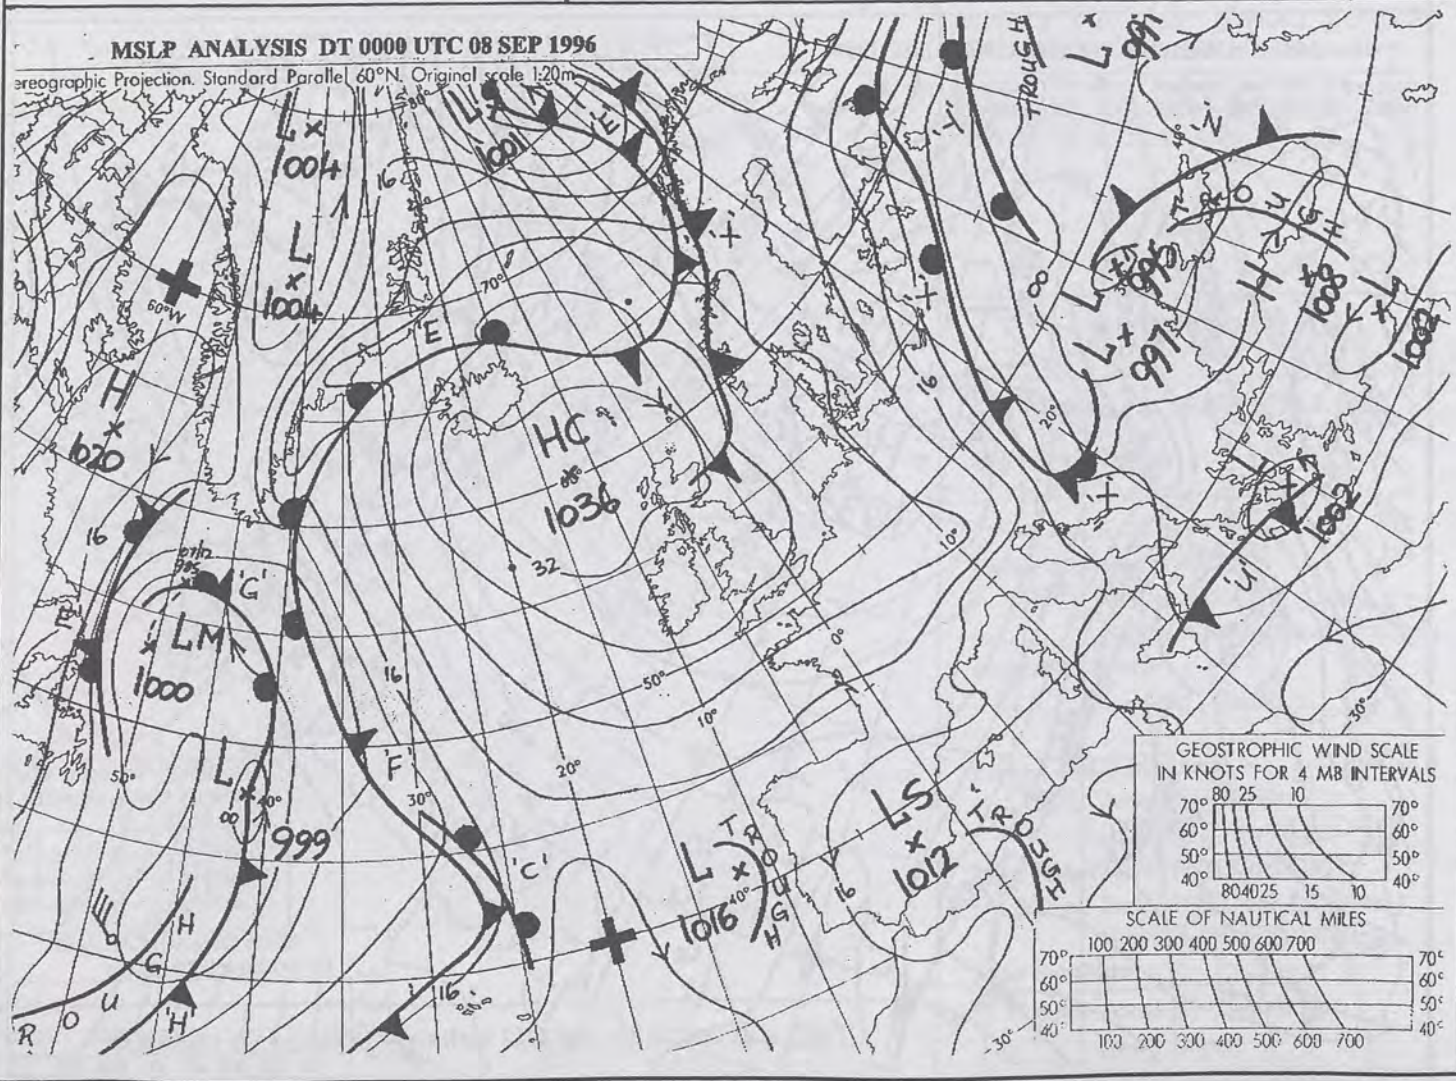 MSLP ANALYSIS DT 0000 UTC 08 SEP 1996
ereographic Projection. Standard Parallel 60°N. Original scale 1:20m
80°
L
1004
L
1001
'E'
TROUGH
L
997
'Y'
40°
16
L
1004
60°W
70°
'E'
TROUGH
L
995
L
997
H
1008
L
1002
H
1020
16
20°
HC
1036
32
10°
L
1002
'U'
16
'G'
LM
1000
50°
16
50°
0°
10°
30°
L
40°
999
'F'
20°
30°
'C'
TROUGH
L
1016
40°
LS
1012
16
TROUGH
H
G
U
O
R
'H'
16
30°
GEOSTROPHIC WIND SCALE
IN KNOTS FOR 4 MB INTERVALS
80 25 10
70° 70°
60° 60°
50° 50°
40° 40°
80 40 25 15 10
SCALE OF NAUTICAL MILES
100 200 300 400 500 600 700
70° 70°
60° 60°
50° 50°
40° 40°
100 200 300 400 500 600 700